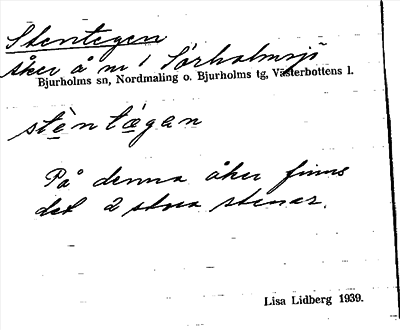 Stentegen
åker å nr 1 Sörholmsjö
Bjurholms sn, Nordmaling o. Bjurholms tg, Västerbottens l.
stèntegan
På denna åker finns
det 2 stora stenar.
Lisa Lidberg 1939.